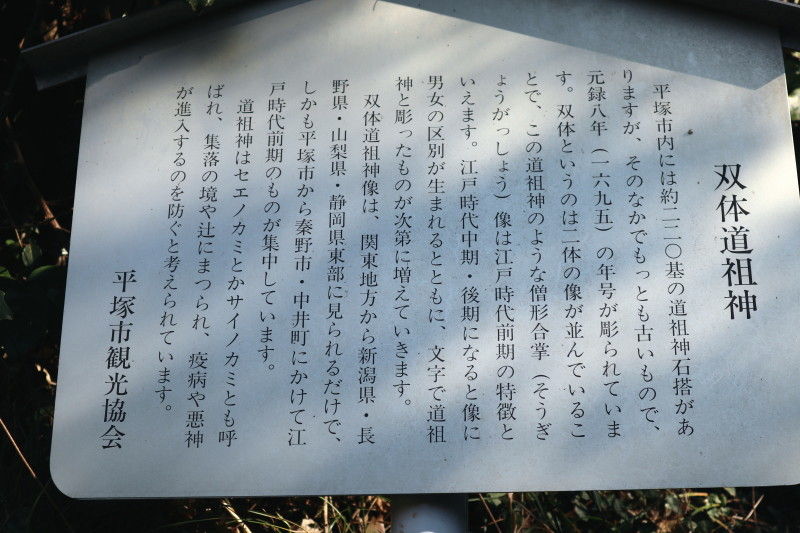 双体道祖神
平塚市内には約二二〇基の道祖神石搭があ
りますが、そのなかでもっとも古いもので、
元録八年（一六九五）の年号が彫られていま
す。双体というのは二体の像が並んでいるこ
とで、この道祖神のような僧形合掌（そうぎ
ょうがっしょう）像は江戸時代前期の特徴と
いえます。江戸時代中期・後期になると像に
男女の区別が生まれるとともに、文字で道祖
神と彫ったものが次第に増えていきます。
双体道祖神像は、関東地方から新潟県・長
野県・山梨県・静岡県東部に見られるだけで、
しかも平塚市から秦野市・中井町にかけて江
戸時代前期のものが集中しています。
道祖神はセエノカミとかサイノカミとも呼
ばれ、集落の境や辻にまつられ、疫病や悪神
が進入するのを防ぐと考えられています。
平塚市観光協会